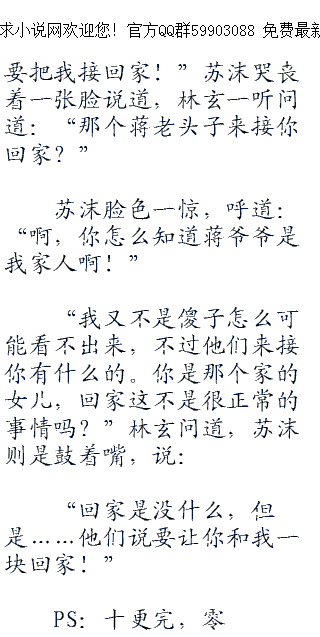 求小说网欢迎您！官方QQ群59903088 免费最新
要把我接回家！”苏沫哭丧
着一张脸说道，林玄一听问
道：“那个蒋老头子来接你
回家？”
苏沫脸色一惊，呼道：
“啊，你怎么知道蒋爷爷是
我家人啊！”
“我又不是傻子怎么可
能看不出来，不过他们来接
你有什么的。你是那个家的
女儿，回家这不是很正常的
事情吗？”林玄问道，苏沫
则是鼓着嘴，说：
“回家是没什么，但
是……他们说要让你和我一
块回家！”
PS：十更完，零